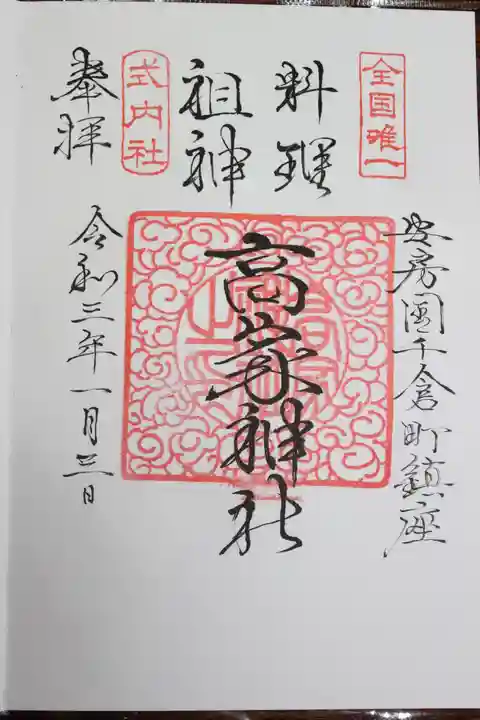 全国唯一
安房国千倉町鎮座
料理
祖神
高家神社
式内社
奉拝
令和三年一月三日